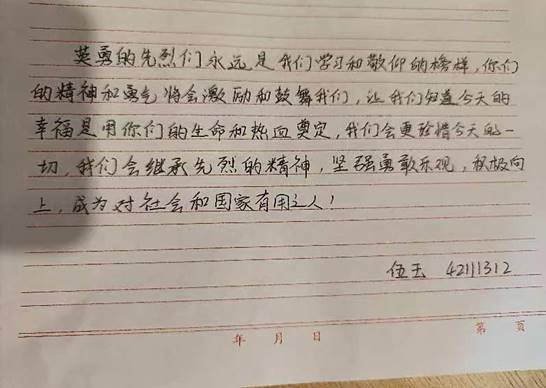 英勇的先烈们永远是我们学习和敬仰的榜样,你们
的精神和勇气将会激励和鼓舞我们,让我们知道今天的
幸福是用你们的生命和热血奠定,我们会更珍惜今天的一
切,我们会继承先烈的精神,坚强勇敢乐观,积极向
上,成为对社会和国家有用之人!
伍玉 42111312
年 月 日 第 页